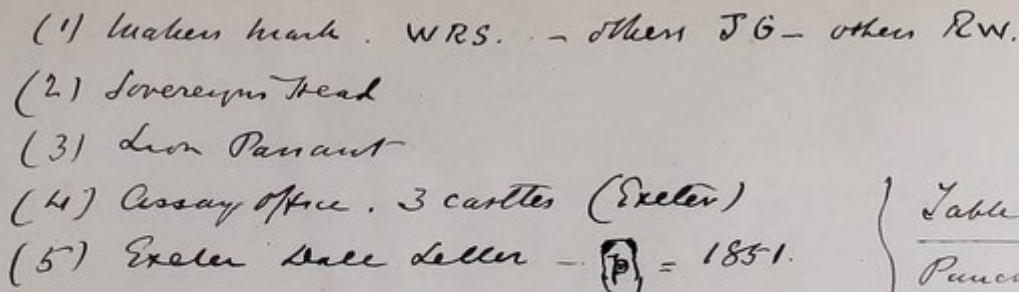 (1) Makers mark. WRS. - others JG - others RW.
(2) Sovereigns Head
(3) Lion Passant
(4) Assay office. 3 castles (Exeter)
(5) Exeter Date Letter - P = 1851.
Table
Punc